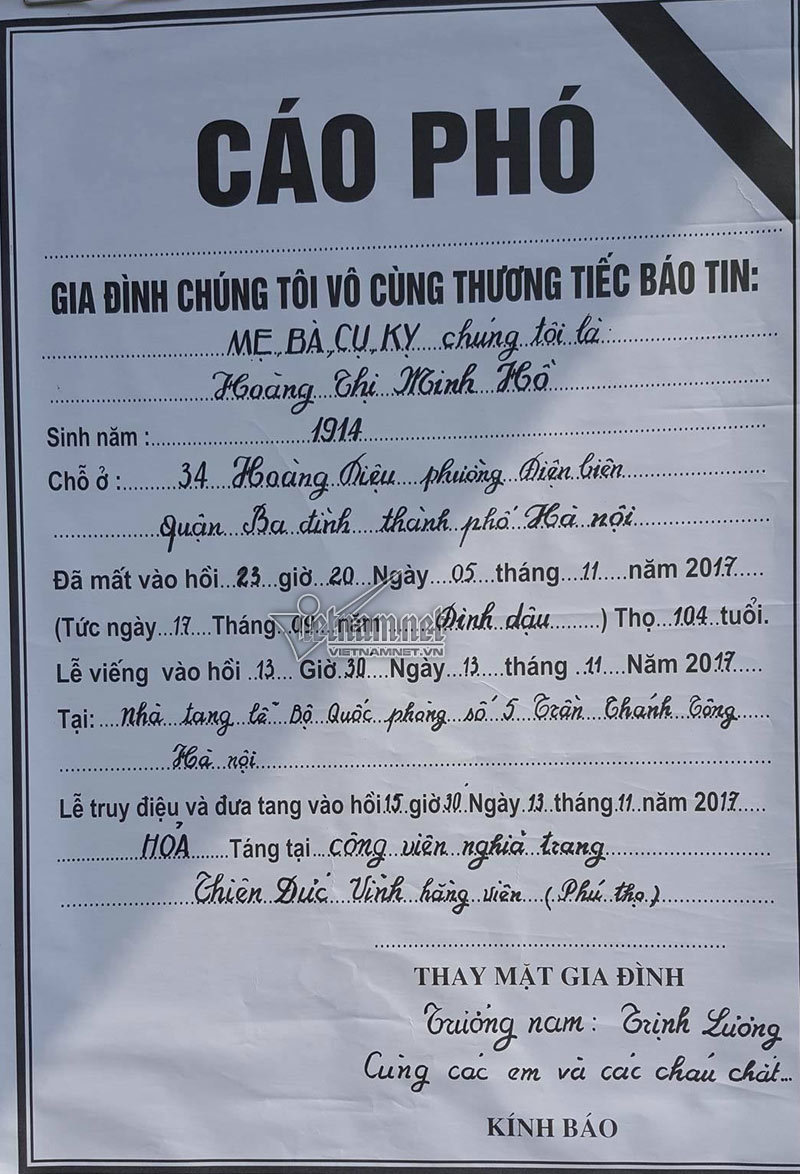 CÁO PHÓ
GIA ĐÌNH CHÚNG TÔI VÔ CÙNG THƯƠNG TIẾC BÁO TIN:
MẸ, BÀ, CỤ, KỴ chúng tôi là
Hoàng Thị Minh Hồ
Sinh năm : 1914
Chỗ ở : 34 Hoàng Diệu phường Điện biên
quận Ba đình thành phố Hà nội
Đã mất vào hồi 23 giờ 20 Ngày 05 tháng 11 năm 2017
(Tức ngày 17 Tháng 09 năm Đinh dậu ) Thọ 104 tuổi.
vietnamnet
VIETNAMNET.VN
Lễ viếng vào hồi 13 Giờ 30 Ngày 13 tháng 11 Năm 2017
Tại: Nhà tang lễ Bộ Quốc phòng số 5 Trần Thánh Tông
Hà nội
Lễ truy điệu và đưa tang vào hồi 15 giờ 30 Ngày 13 tháng 11 năm 2017
HOẢ Táng tại công viên nghĩa trang
Thiên Đức Vĩnh hằng viên (Phú thọ)
THAY MẶT GIA ĐÌNH
Trưởng nam : Trịnh Lương
Cùng các em và các cháu chắt...
KÍNH BÁO